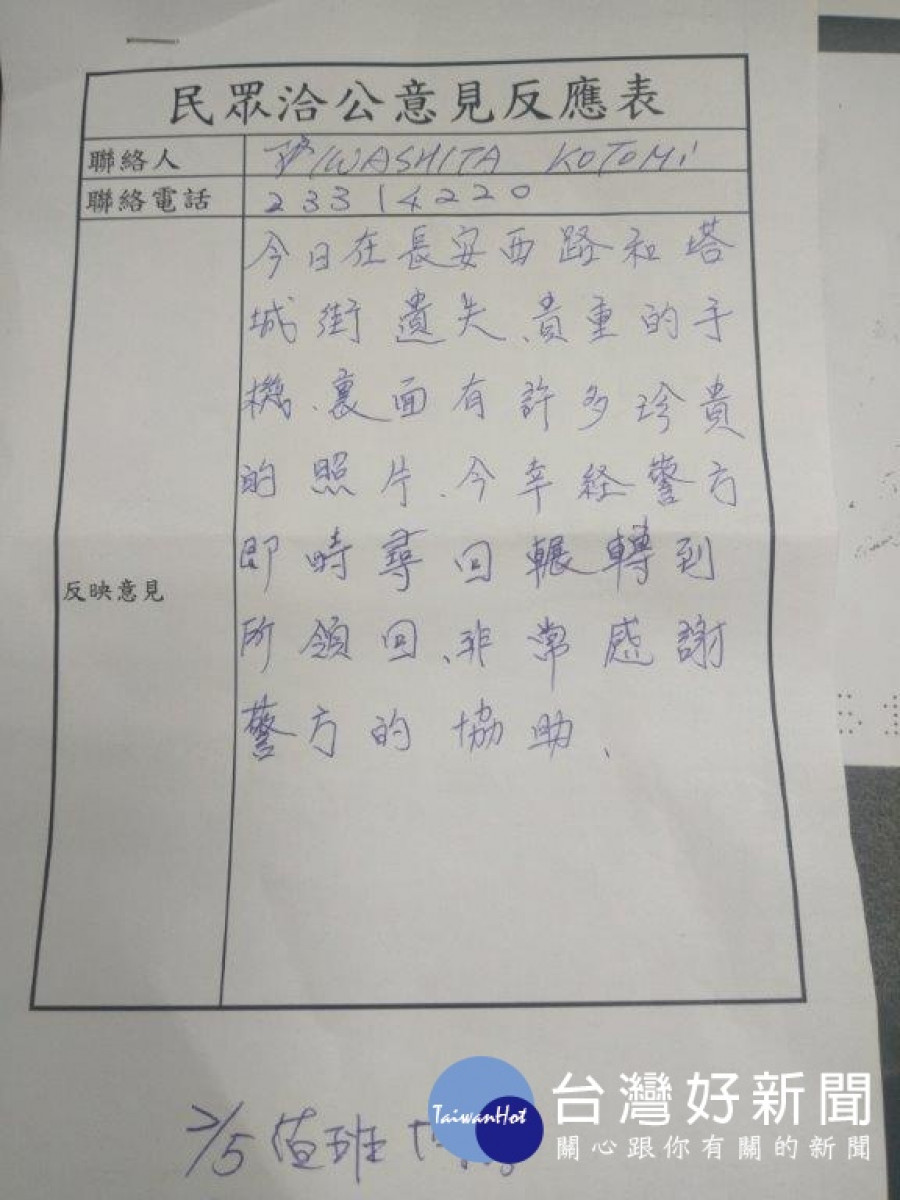 民眾洽公意見反應表
聯絡人 IWASHITA KOTOMi
聯絡電話 23314220
反映意見
今日在長安西路和塔
城街遺失、貴重的手
機、裏面有許多珍貴
的照片、今幸経警方
即時尋回輾轉到
所領回、非常感謝
警方的協助、
2/5 值班
TaiwanHot
台灣好新聞
關心跟你有關的新聞